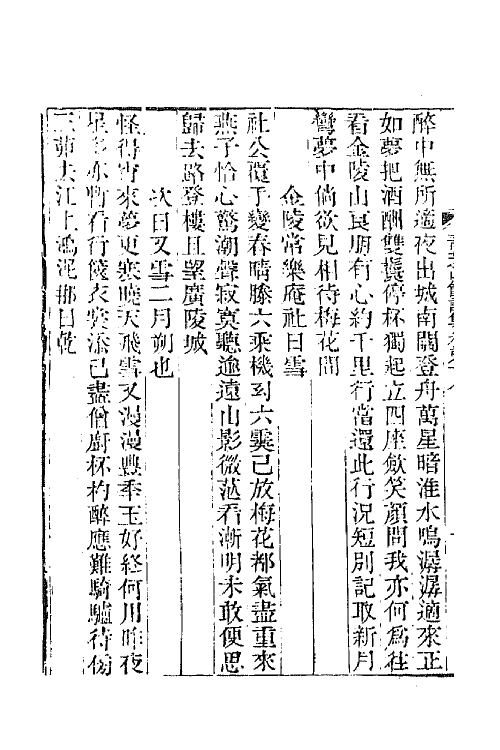 醉中無所適夜出城南闉登舟萬星暗淮水鳴潺潺適來正
如夢把酒酬雙鬟停杯獨起立四座斂笑顏問我亦何為往
看金陵山良朋有心約千里行當還此行況短別記取新月
彎夢中倘欲見相待梅花間
金陵常樂庵社日雪
社公覆手變春晴滕六乘機到六霙已放梅花都氣盡重來
燕子恰心驚潮聲寂寞聽逾遠山影微茫看漸明未敢便思
歸去路登樓且望廣陵城
次日又雪二月朔也
怪得宵來夢更寒曉天飛雪又漫漫豐年玉好終何用昨夜
星多亦暫看行篋衣裘添已盡僧廚杯杓醉應難騎驢待傍
三茆去江上鴻泥那日乾